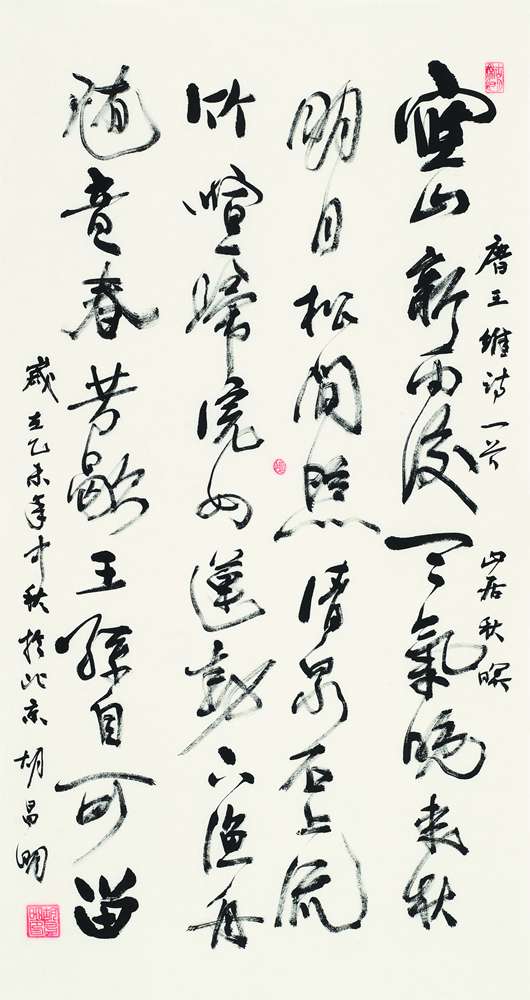 唐王维诗一首 山居秋暝
空山新雨後天氣晚来秋
明月松间照清泉石上流
竹喧歸浣女蓮動下漁舟
随意春芳歇王孫自可留
歲在乙未年中秋於北京胡昌明